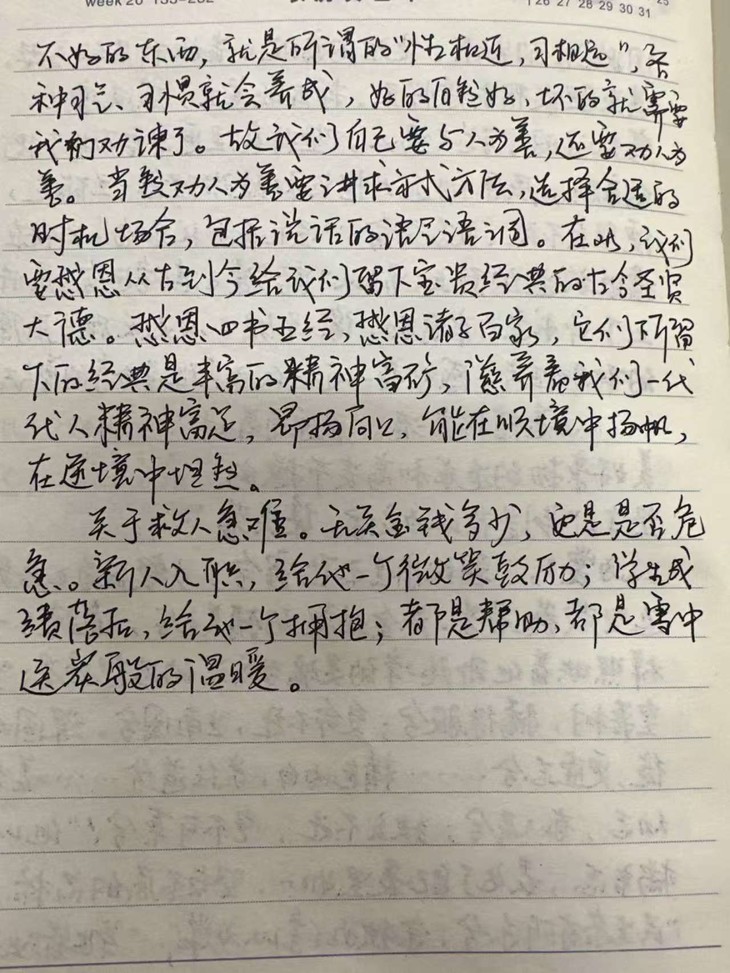 week 20 133-232
26 27 28 29 30 31
不好的东西,就是所谓的"性相近,习相远",各
种习气、习惯就会养成,好的自然好,坏的就需要
我们劝谏了。故我们自己要与人为善,还要劝人为
善。当然劝人为善要讲求方式方法,选择合适的
时机场合,包括说话的语气语调。在此,我们
要感恩从古到今给我们留下宝贵经典的古今圣贤
大德。感恩四书五经,感恩诸子百家,它们所留
下的经典是丰富的精神富矿,滋养着我们一代
代人精神富足,昂扬向上,能在顺境中扬帆,
在逆境中坦然。
关于救人急难。无关金钱多少,更是是否危
急。新人入职,给他一个微笑鼓励;学生成
绩落后,给他一个拥抱;都是帮助,都是雪中
送炭般的温暖。